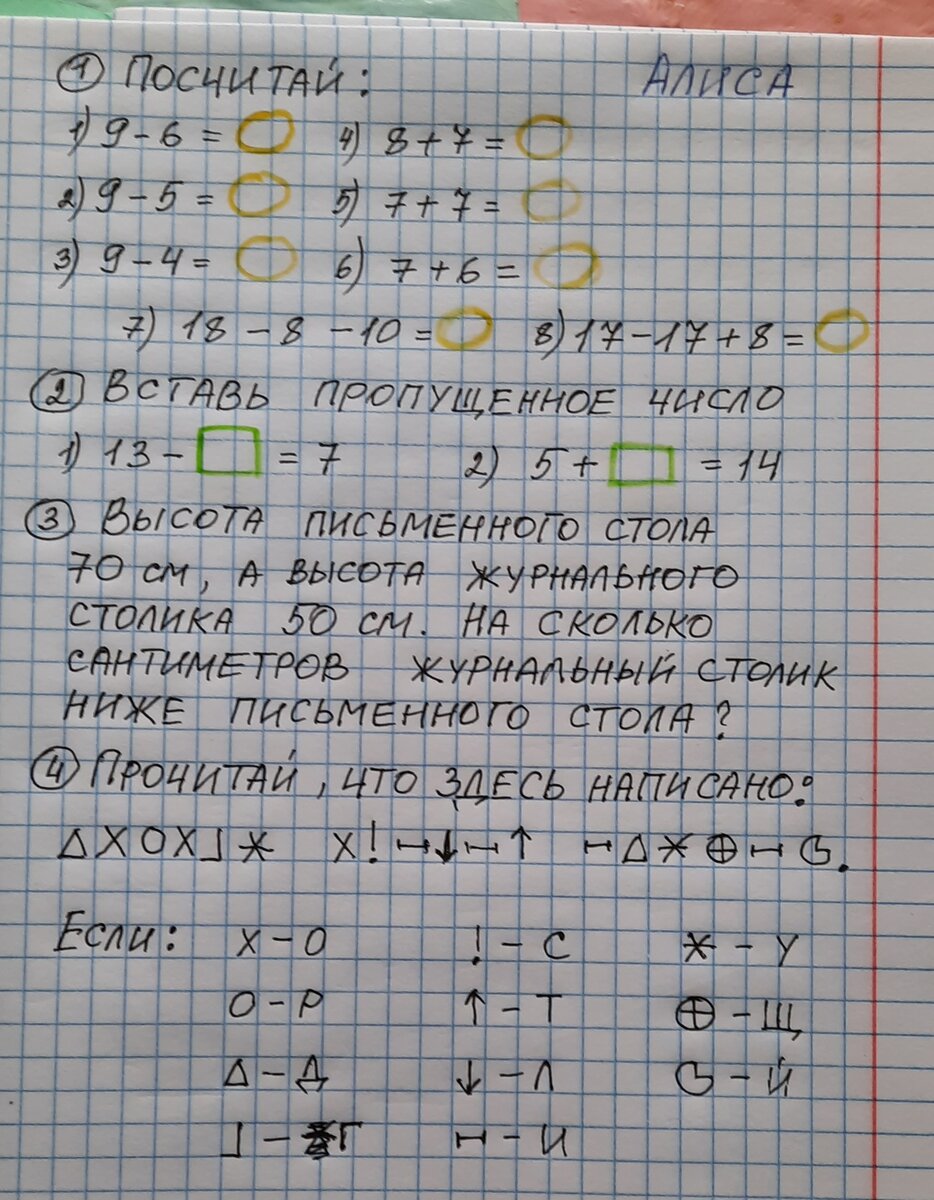 ① Посчитай: Алиса
1) 9 - 6 = ○ 4) 8 + 7 = ○
2) 9 - 5 = ○ 5) 7 + 7 = ○
3) 9 - 4 = ○ 6) 7 + 6 = ○
7) 18 - 8 - 10 = ○ 8) 17 - 17 + 8 = ○
② Вставь пропущенное число
1) 13 - □ = 7 2) 5 + □ = 14
③ Высота письменного стола
70 см, а высота журнального
столика 50 см. На сколько
сантиметров журнальный столик
ниже письменного стола?
④ Прочитай, что здесь написано:
△XOX⅃* X!⊢⊣↓⊢⊣↑ ⊢⊣△*⊕⊢⊣◔.
Если: X - О ! - С * - У
O - Р ↑ - Т ⊕ - Щ
△ - Д ↓ - Л ◔ - Й
⅃ - Г ⊢⊣ - И